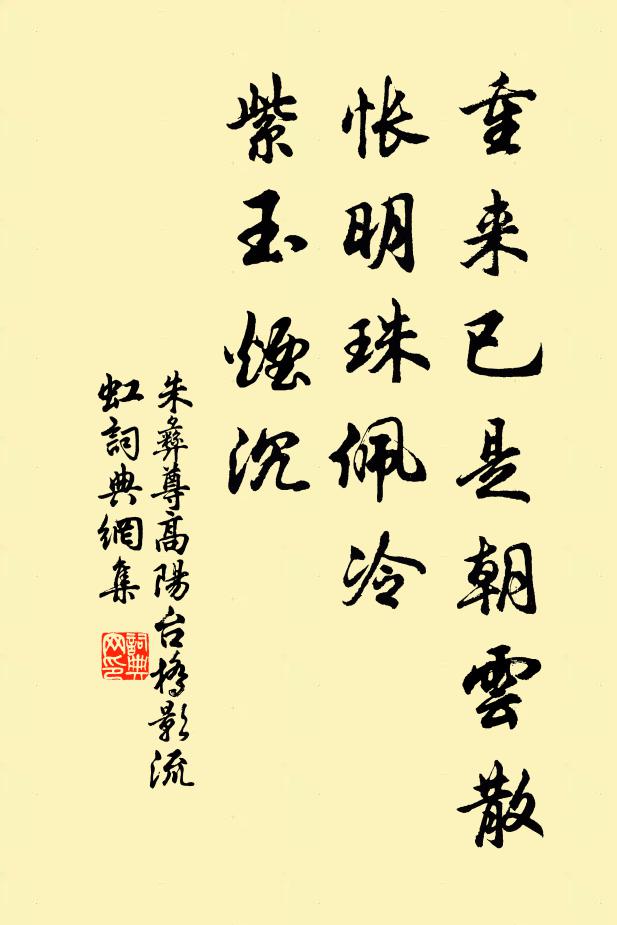 重来已是朝雲散
怅明珠佩冷
紫玉煙沉
朱彝尊高陽台橋影流
虹詞典網集
詞典
网印